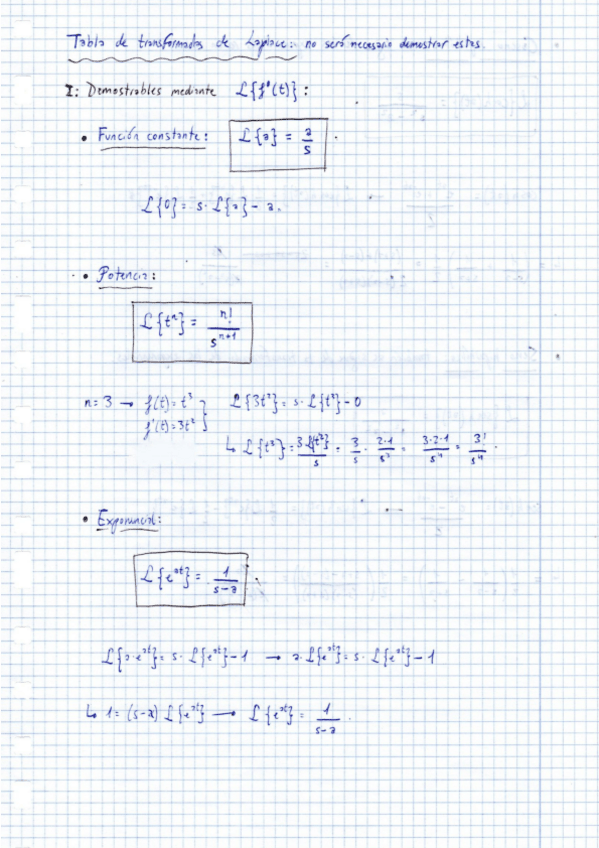 Tabla de transformadas de Laplace: no será necesario demostrar estas.
I: Demostrables mediante ℒ{f'(t)}:
• Función constante: ℒ{a} = a/s.
ℒ{0} = s·ℒ{a} - a.
• Potencia:
ℒ{tⁿ} = n!/sⁿ⁺¹
n=3 → f(t)=t³ ℒ{3t²} = s·ℒ{t³} - 0
f'(t)=3t²
↳ ℒ{t³} = 3ℒ{t²}/s = 3/s · 2·1/s³ = 3·2·1/s⁴ = 3!/s⁴.
• Exponencial:
ℒ{eᵃᵗ} = 1/(s-a).
ℒ{a·eᵃᵗ} = s·ℒ{eᵃᵗ} - 1 → a·ℒ{eᵃᵗ} = s·ℒ{eᵃᵗ} - 1
↳ 1 = (s-a) ℒ{eᵃᵗ} → ℒ{eᵃᵗ} = 1/(s-a).